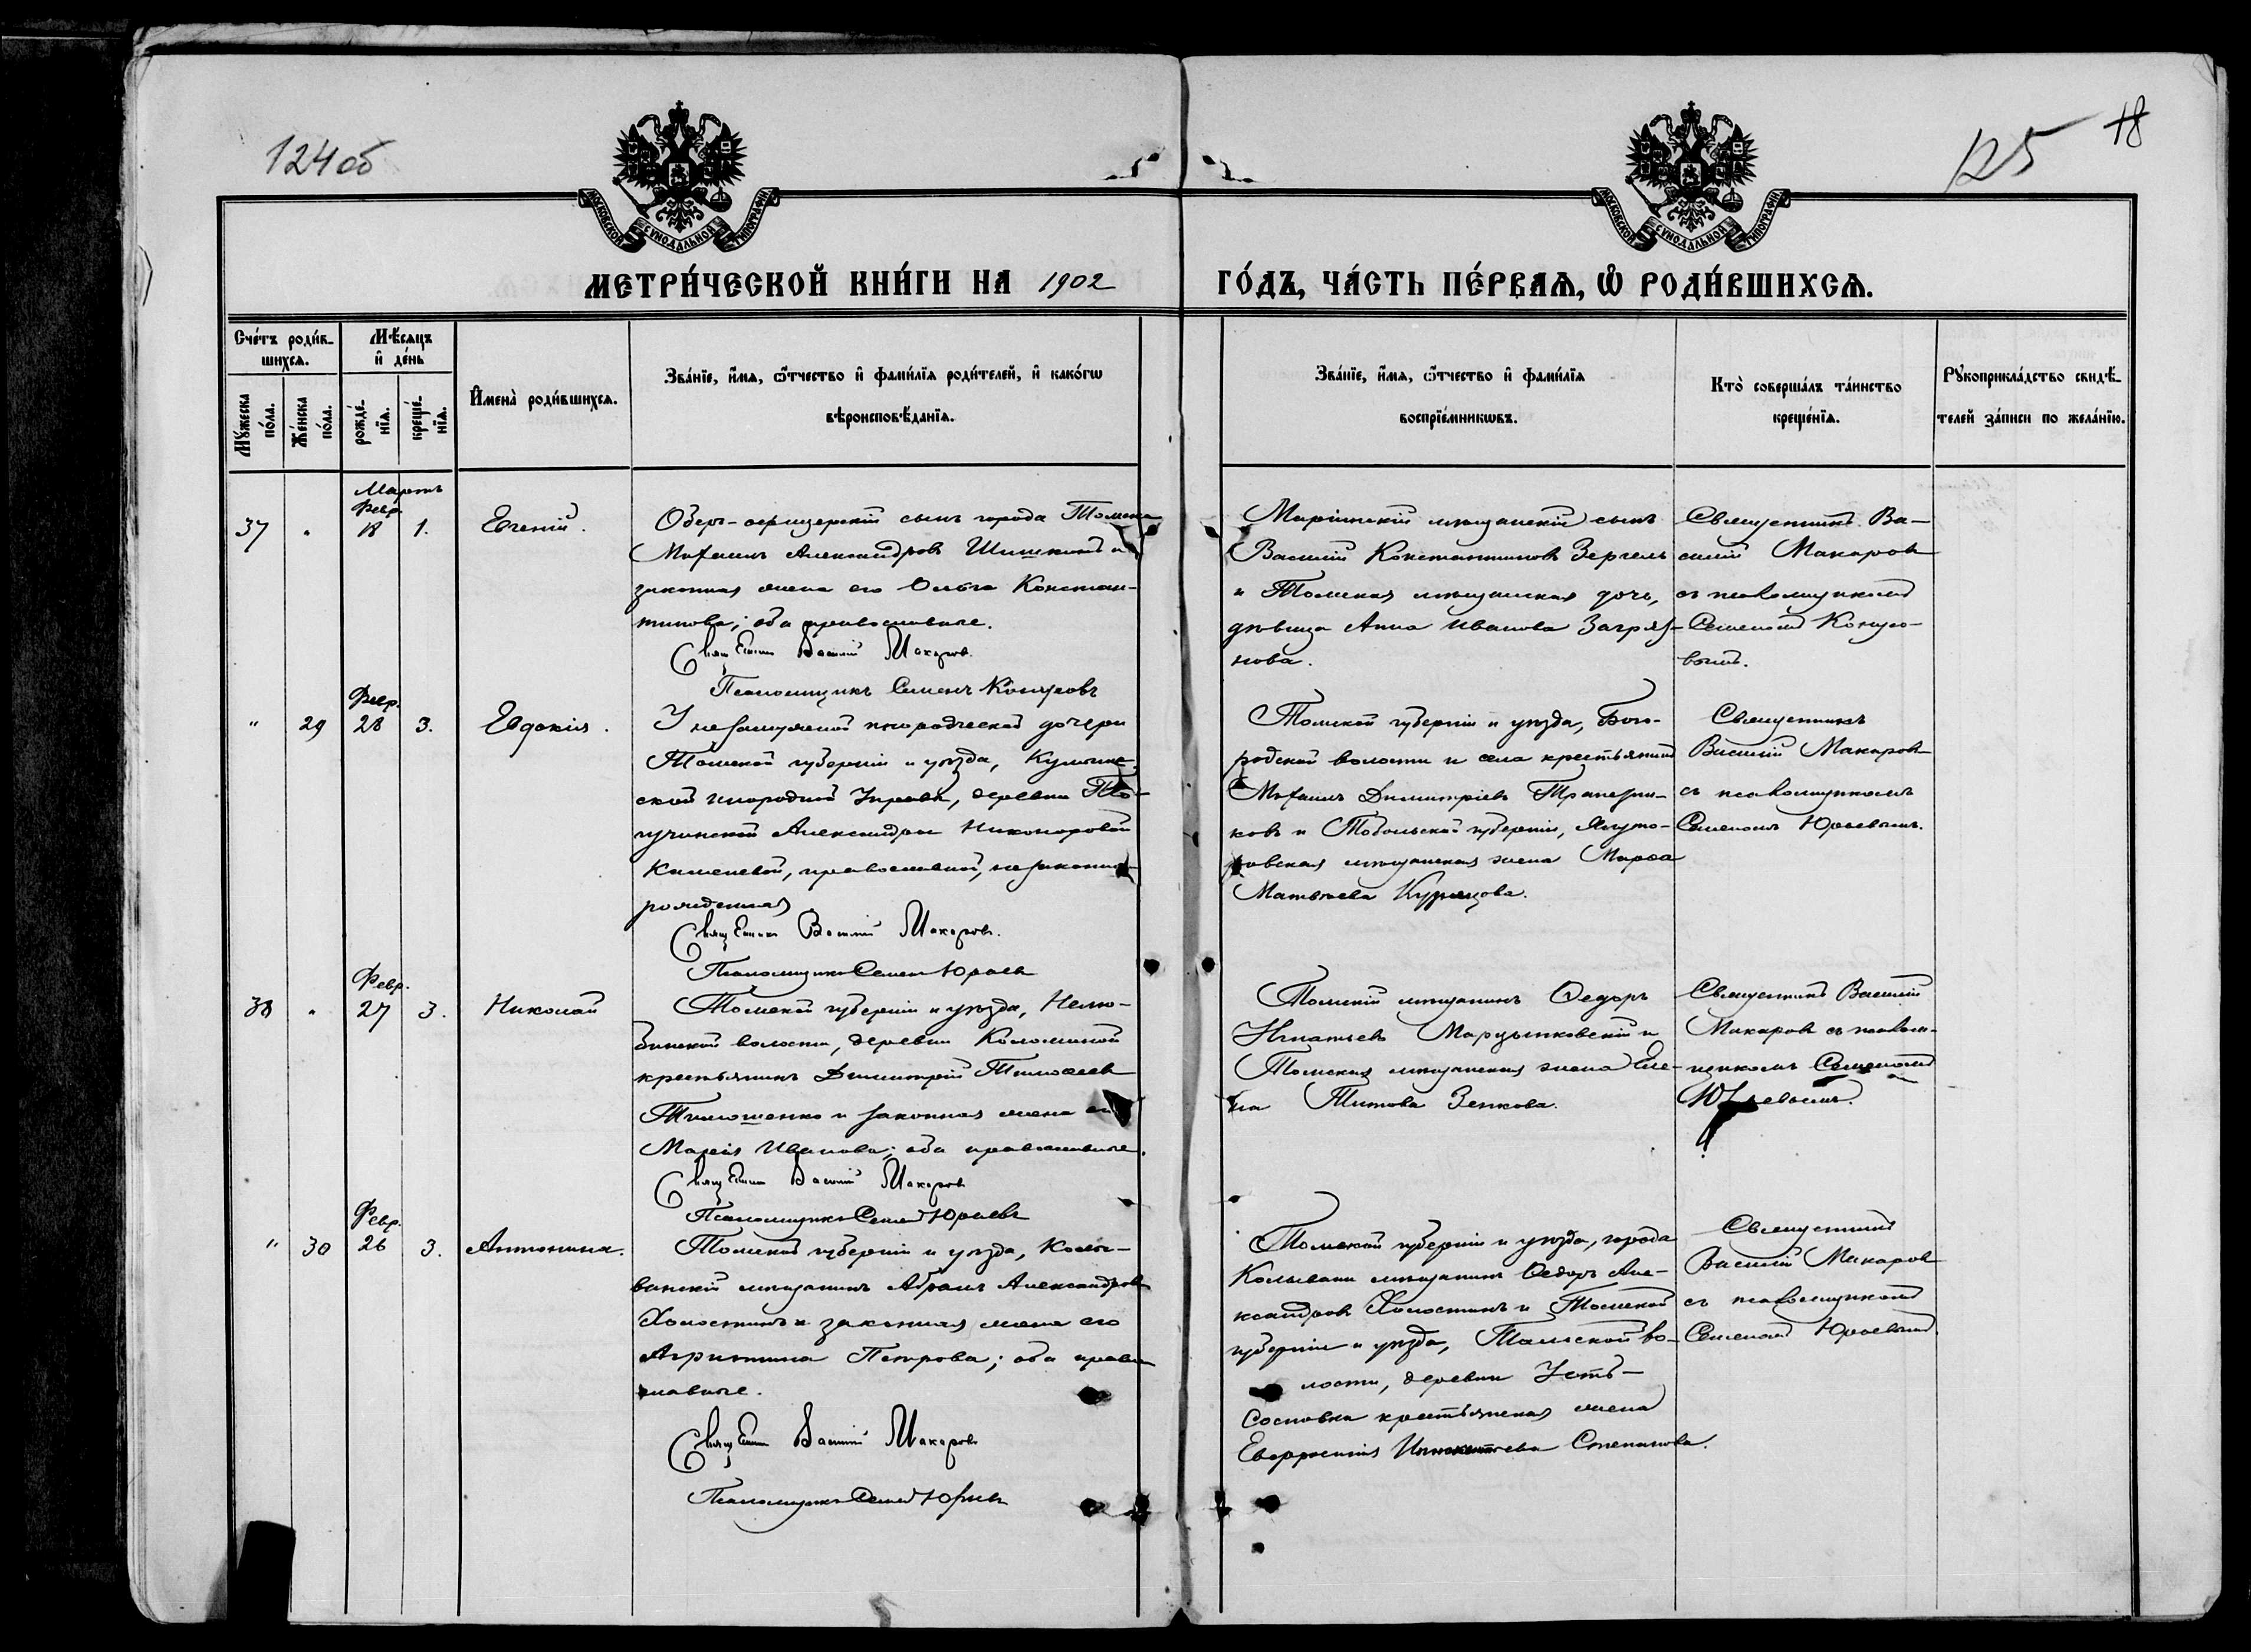 124 об
125
18
МОСКОВСКОЙ СѴНОДАЛЬНОЙ ТИПОГРАФІИ
МОСКОВСКОЙ СѴНОДАЛЬНОЙ ТИПОГРАФІИ
МЕТРИ́ЧЕСКОЙ КНИ́ГИ НА 1902
ГО́ДЪ, ЧА́СТЬ ПЕ́РВАѦ, Ѡ РОДИ́ВШИХСѦ.
Сче́тъ роди́в-
шихсѧ.
Мѣсѧцъ
и де́нь
Мꙋжеска
по́ла.
Же́нска
по́ла.
рожде́-
нїѧ.
креще́-
нїѧ.
Имена̀ роди́вшихсѧ.
Зва́нїе, и́мѧ, ѻ́тчество и фами́лїѧ роди́телей, и како́гѡ
вѣроисповѣ́данїѧ.
Зва́нїе, и́мѧ, ѻ́тчество и фами́лїѧ
воспрїе́мникѡвъ.
Кто̀ соверша́лъ та́инство
креще́нїѧ.
Рꙋкоприкла́дство свидѣ́-
телей за́писи по жела́нїю.
Мартъ
Февр.
37 " 18 1. Евгеній.
Оберъ-офицерскій сынъ города Томска
Михаилъ Александровъ Шишкинъ и
законная жена его Ольга Констан-
тинова; оба православные.
Священникъ Василій Макаровъ.
Псаломщикъ Семенъ
Маріинскій мѣщанскій сынъ
Василій Константиновъ
и Томская мѣщанская дочь,
дѣвица Анна Иванова Загря-
нова.
Священникъ Ва-
силій Макаровъ
съ псаломщикомъ
Семеномъ
вымъ.
Февр.
" 29 28 3. Евдокія.
У незамужней инородческой дочери
Томской губерніи и уѣзда,
ской инородной Управы, деревни То-
гучинской Александры Никаноровой
православной, незаконно-
рожденная
Священникъ Василій Макаровъ.
Псаломщикъ Семенъ Юрьевъ
Томской губерніи и уѣзда, Бого-
родской волости и села крестьянинъ
Михаилъ Димитріевъ Трапезни-
ковъ и Тобольской губерніи, Ялуто-
ровская мѣщанская жена Марѳа
Матвѣева
Священникъ
Василій Макаровъ
съ псаломщикомъ
Семеномъ Юрьевымъ.
Февр.
38 " 27 3. Николай
Томской губерніи и уѣзда, Нелю-
бинской волости, деревни Коломиной
крестьянинъ Димитрій Тимоѳеевъ
Тимошенко и законная жена его
Марія Иванова; оба православные.
Священникъ Василій Макаровъ
Псаломщикъ Семенъ Юрьевъ
Томскій мѣщанинъ Ѳедоръ
Игнатьевъ Марцынковскій и
Томская мѣщанская жена Еле-
на Титова Зенкова.
Священникъ Василій
Макаровъ съ псалом-
щикомъ Семеномъ
Юрьевымъ.
Февр.
" 30 26 3. Антонина.
Томской губерніи и уѣзда, Колы-
ванскій мѣщанинъ Абрамъ Александровъ
Холостинъ и законная жена его
Агрипина Петрова; оба право-
славные.
Священникъ Василій Макаровъ
Псаломщикъ Семенъ Юрьевъ
Томской губерніи и уѣзда, города
Колывани мѣщанинъ Ѳедоръ Але-
ксандровъ Холостинъ и Томской
губерніи и уѣзда, Тальской во-
лости, деревни Усть-
Сосновка крестьянская жена
Евфросинія Степанова.
Священникъ
Василій Макаровъ
съ псаломщикомъ
Семеномъ Юрьевымъ.